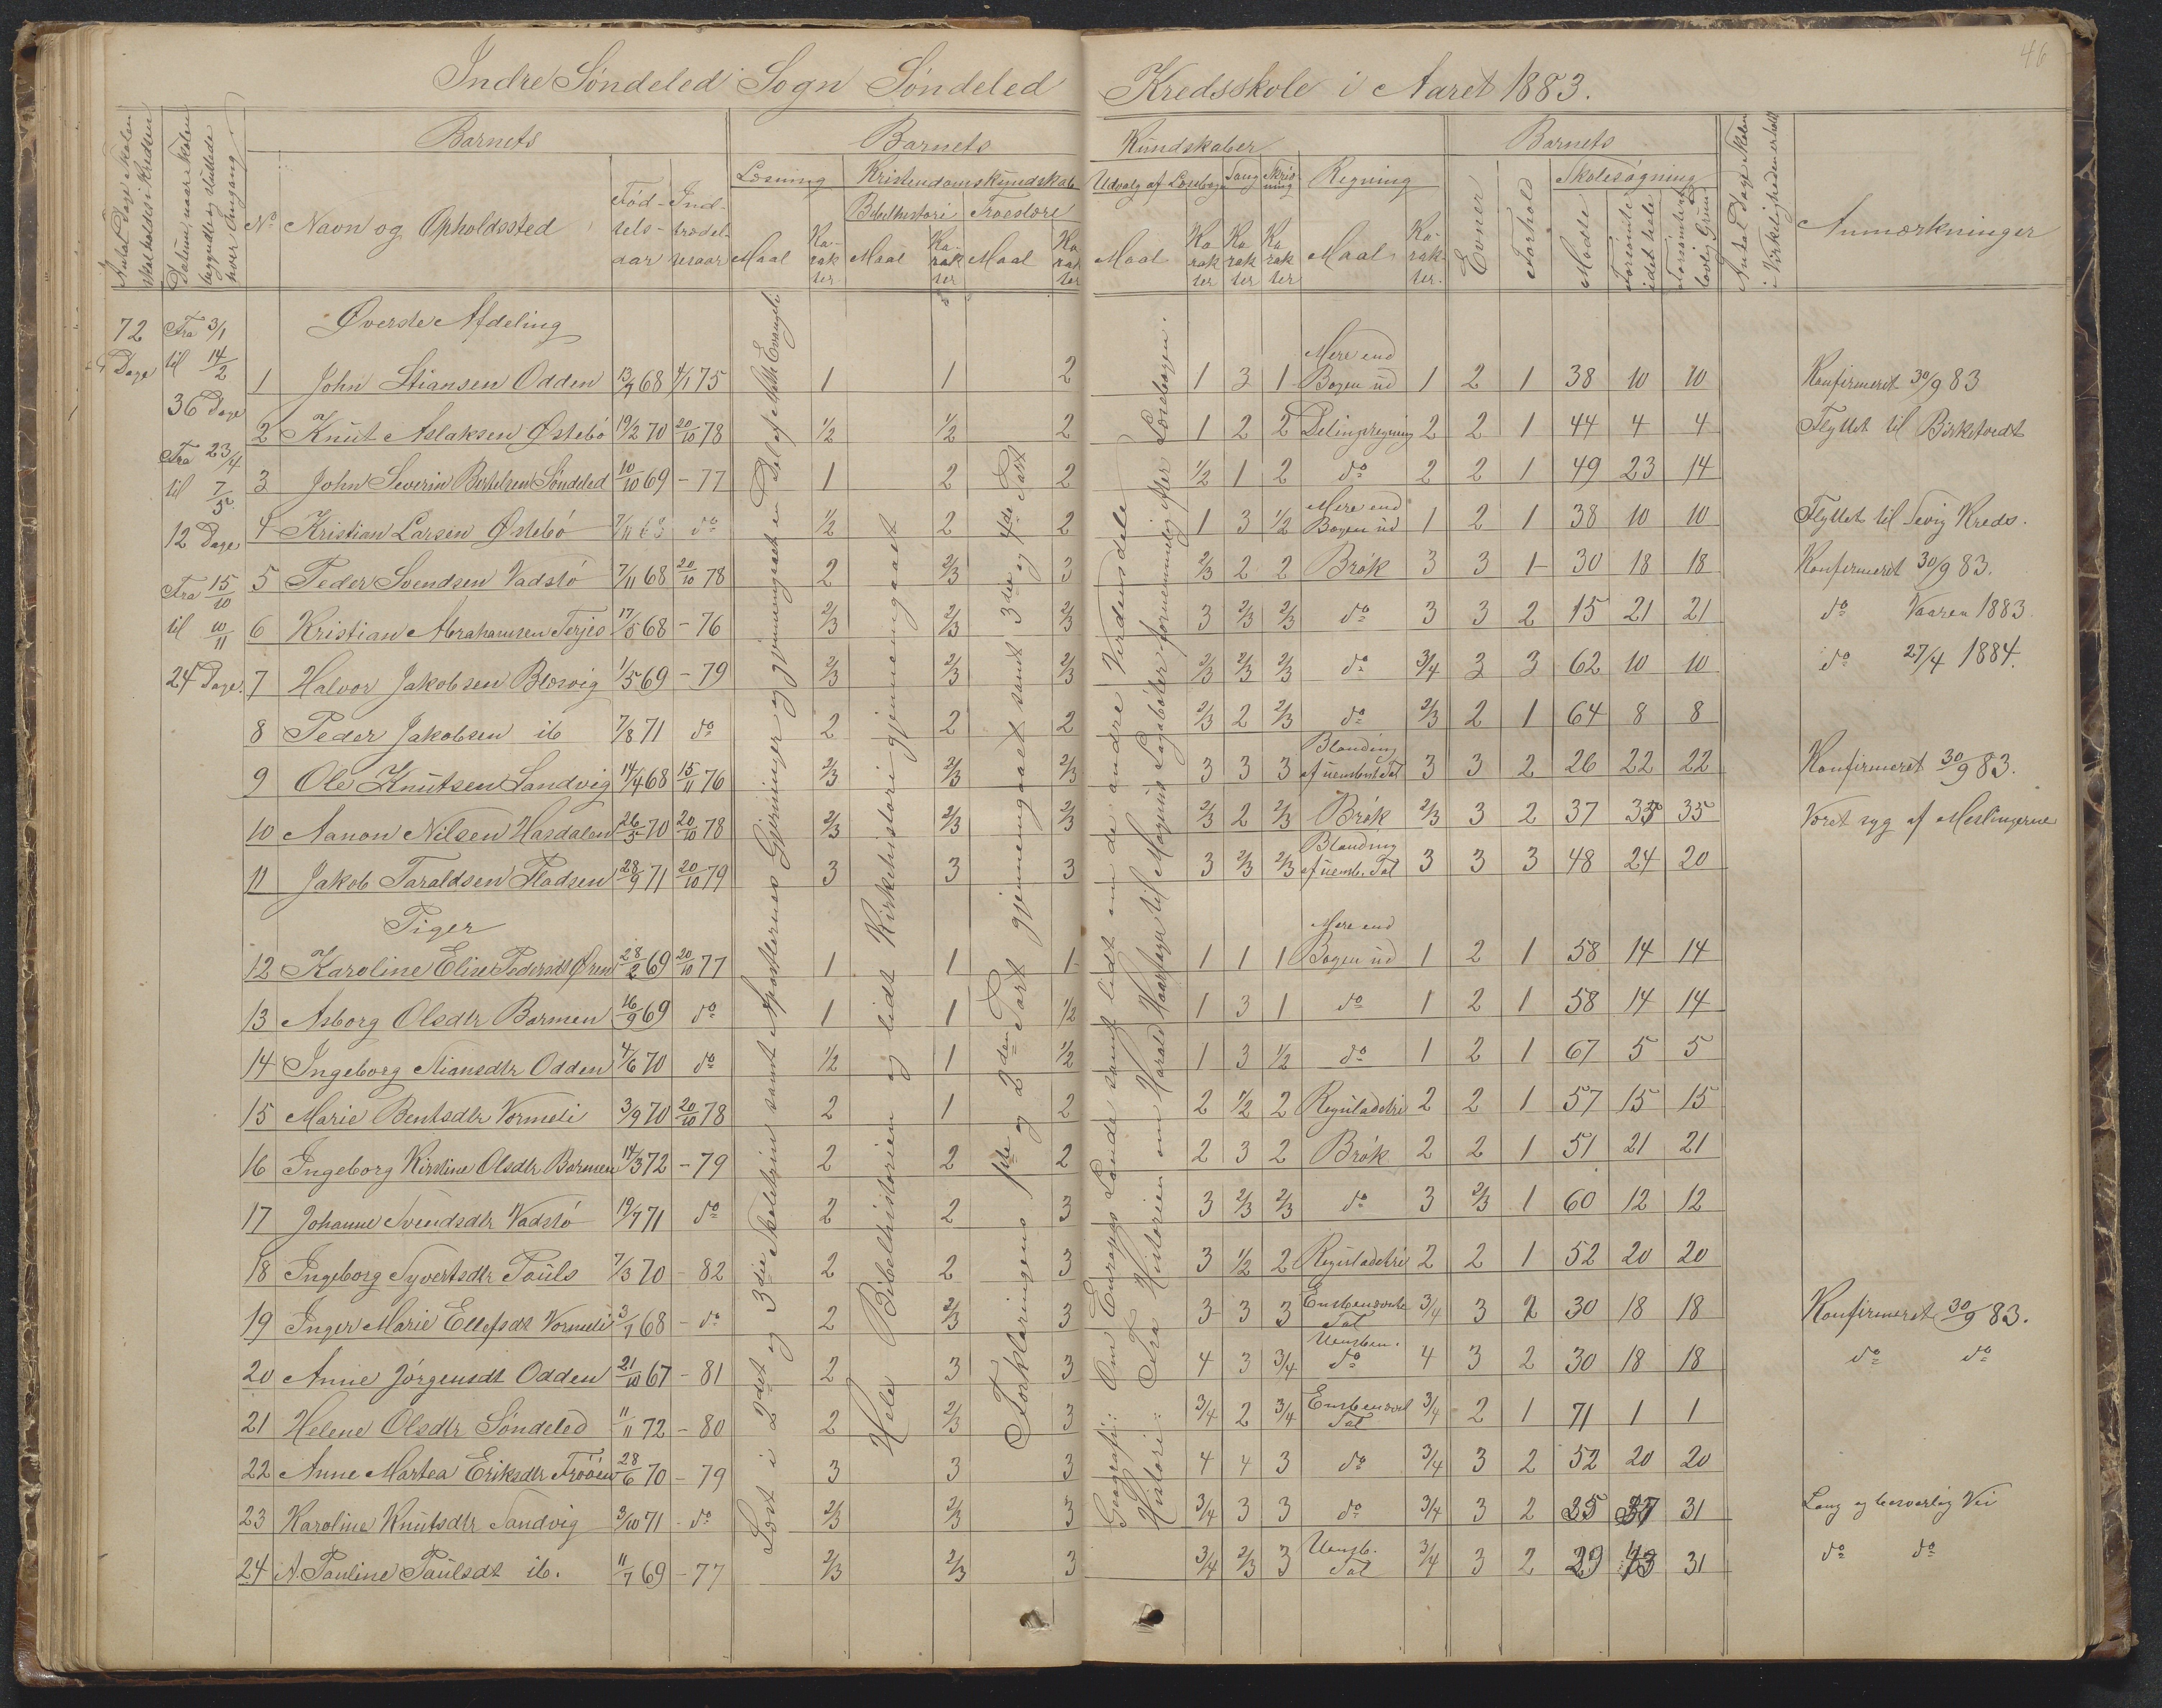 46
Indre Söndeled Sogn Söndeled Kredsskole i Aaret 1883.
Antal Dage Skolen skal holdes i Kredsen
Datum, naar Skolen begyndte og sluttede hver Omgang
Barnets
No Navn og Opholdssted
Fødselsaar
Indtrædelsesaar
Barnets Kundskaber
Læsning
Kristendomskundskab
Bibelhistorie Troeslære
Maal Karakter Maal Karakter Maal Karakter
Udvalg af Læsebogen Sang Skrivning Regning
Maal Karakter Karakter Karakter Maal Karakter
Barnets
Evner Forhold
Skolesøgning
Mödte
Forsömte i det hele
Forsömte af lovlig Grund
Antal Dage Skolen i Virkeligheden er holdt
Anmærkninger
72 Dage
Fra 3/1 til 14/2
36 Dage
Fra 23/4 til 7/5
12 Dage
Fra 15/10 til 10/11
24 Dage.
Læst i 2det og 3die Skoletrin samt Apostlernes Gjerninger og gjennemgaaet en Del af Math. Evangeli
Hele Bibelhistorien og lidt Kirkehistorie gjennemgaaet
Forklaringens 1ste og 2den Part gjennemgaaet samt 3die og 4de Part
Geografi: Om Europas Lande samt lidt om de andre Verdensdele
Historie: Fra Historien om Harald Haarfagre til Magnus Lagaböter fornemmelig efter Læsebogen.
Øverste Afdeling
1 John Stiansen Odden 13/9 68 4/1 75 1 1 2 1 3 1 Mere end Bogen ud 1 2 1 38 10 10 Konfirmeret 30/9 83
2 Knut Aslaksen Østebö 19/2 70 20/10 78 1/2 1/2 2 1 2 2 Delingsregning 2 2 1 44 4 4 Flyttet til Birketvedt
3 John Severin Bertelsen Söndeled 10/10 69 - 77 1 2 2 1/2 1 2 do 2 2 1 49 23 14
4 Kristian Larsen Östebö 7/11 68 do 1/2 2 2 1 3 1/2 Mere end Bogen ud 1 2 1 38 10 10 Flyttet til Sevig Kreds.
5 Peder Svendsen Vadstö 7/11 68 20/10 78 2 2/3 3 2/3 2 2 Brök 3 3 1 30 18 18 Konfirmeret 30/9 83.
6 Kristian Abrahamsen Terjes 17/5 68 - 76 2/3 2/3 2/3 3 2/3 2/3 do 3 3 2 15 21 21 do Vaaren 1883.
7 Halvor Jakobsen Blesvig 1/5 69 - 79 2/3 2/3 2/3 2/3 2/3 2/3 do 3/4 3 3 62 10 10 do 27/4 1884.
8 Peder Jakobsen ib 7/8 71 do 2 2 2 2/3 2 2/3 do 2/3 2 1 64 8 8
9 Ole Knutsen Sandvig 14/4 68 15/11 76 2/3 2/3 2/3 3 3 3 Blanding af uensben. Tal 3 3 2 26 22 22 Konfirmeret 30/9 83.
10 Aanon Nilsen Hasdalen 26/5 70 20/10 78 2/3 2/3 2/3 2/3 2 2/3 Brök 2/3 3 2 37 35 35 Været syg af Meslingerne
11 Jakob Taraldsen Pladsen 28/9 71 20/10 79 3 3 3 3 2/3 2/3 Blanding af uensb. Tal 3 3 3 48 24 20
Piger
12 Karoline Elise Pedersdt Øren 28/2 69 20/10 77 1 1 1 1 1 1 Mere end Bogen ud 1 2 1 58 14 14
13 Asborg Olsdtr Barmen 16/9 69 do 1 1 1/2 1 3 1 do 1 2 1 58 14 14
14 Ingeborg Stiansdtr Odden 4/6 70 do 1/2 1 1/2 1 3 1/2 do 1 2 1 67 5 5
15 Marie Bentsdtr Vormeli 3/9 70 20/10 78 2 1 2 2 1/2 2 Reguladetri 2 2 1 57 15 15
16 Ingeborg Kirstine Olsdtr Barmen 14/3 72 - 79 2 2 2 2 3 2 Brök 2 2 1 51 21 21
17 Johanne Svendsdtr Vadstö 19/7 71 do 2 2 3 3 2/3 2/3 do 3 2/3 1 60 12 12
18 Ingeborg Syvertsdtr Pauls 7/3 70 - 82 2 2 3 3 1/2 2 Reguladetri 2 2 1 52 20 20
19 Inger Marie Ellefsdt Vormeli 3/7 68 - do 2 2/3 3 3 3 3 Ensbenævnte Tal 3/4 3 2 30 18 18 Konfirmeret 30/9 83.
20 Anne Jörgensdt Odden 21/10 67 - 81 2 3 3 4 3 3/4 Uensben. do 4 3 2 30 18 18 do do
21 Helene Olsdtr Söndeled 11/11 72 - 80 2 2/3 3 3/4 2 3/4 Ensbenævnt Tal 3/4 2 1 71 1 1
22 Anne Martea Eriksdtr Fröösen 28/6 70 - 79 3 3 3 4 4 3 do 3/4 3 2 52 20 20
23 Karoline Knutsdtr Sandvig 3/10 71 - do 2/3 2/3 3 3/4 3 3 do 3/4 3 2 35 37 31 Lang og besværlig Vei
24 A. Pauline Paulsdt ib. 11/7 69 - 77 2/3 2/3 3 3/4 2/3 3 Uensb. Tal 3/4 3 2 29 43 31 do do